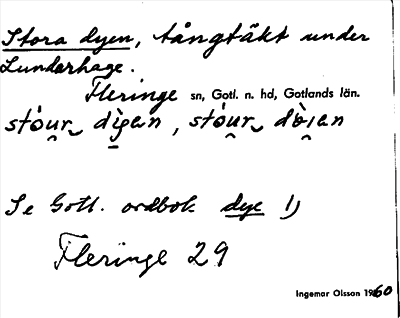 Stora dyen, tångtäkt under
Lunderhage.
Fleringe sn, Gotl. n. hd, Gotlands län.
stóur dìgen, stóur dòien
Se Gotl. ordbok dye 1)
Fleringe 29
Ingemar Olsson 1960